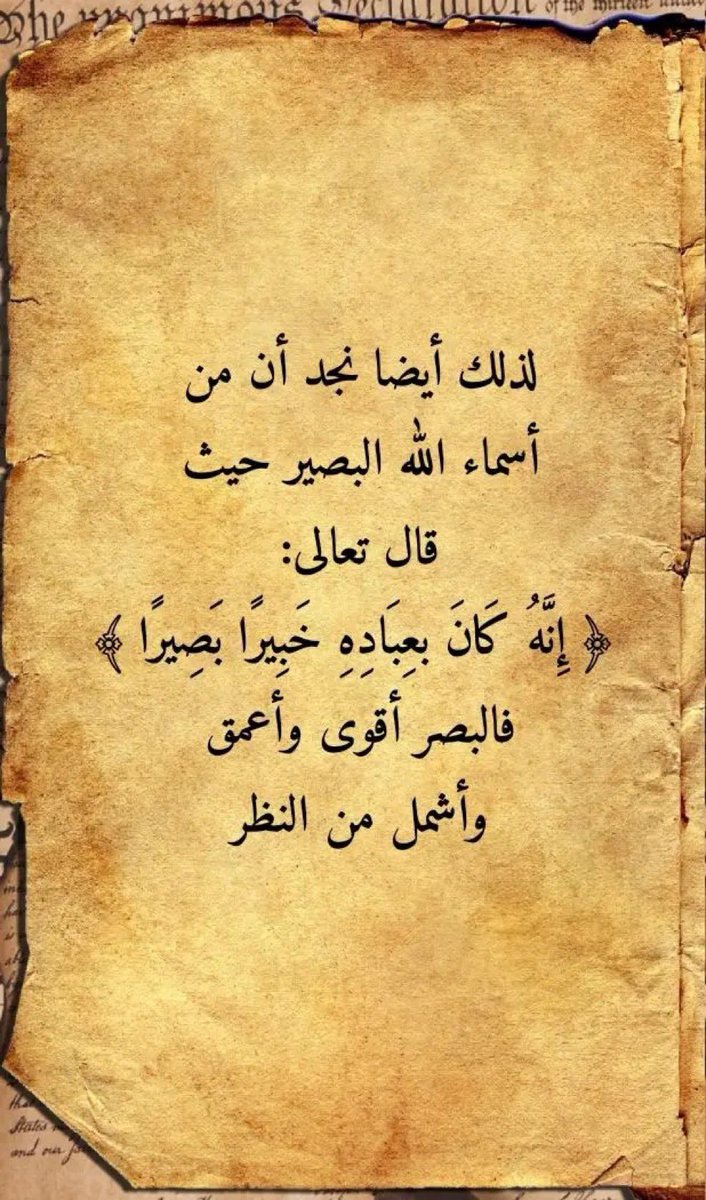 The unanimous Declaration of the thirteen united
لذلك أيضا نجد أن من
أسماء الله البصير حيث
قال تعالى:
﴿ إِنَّهُ كَانَ بعِبَادِهِ خَبِيرًا بَصِيرًا ﴾
فالبصر أقوى وأعمق
وأشمل من النظر
that
States
and our